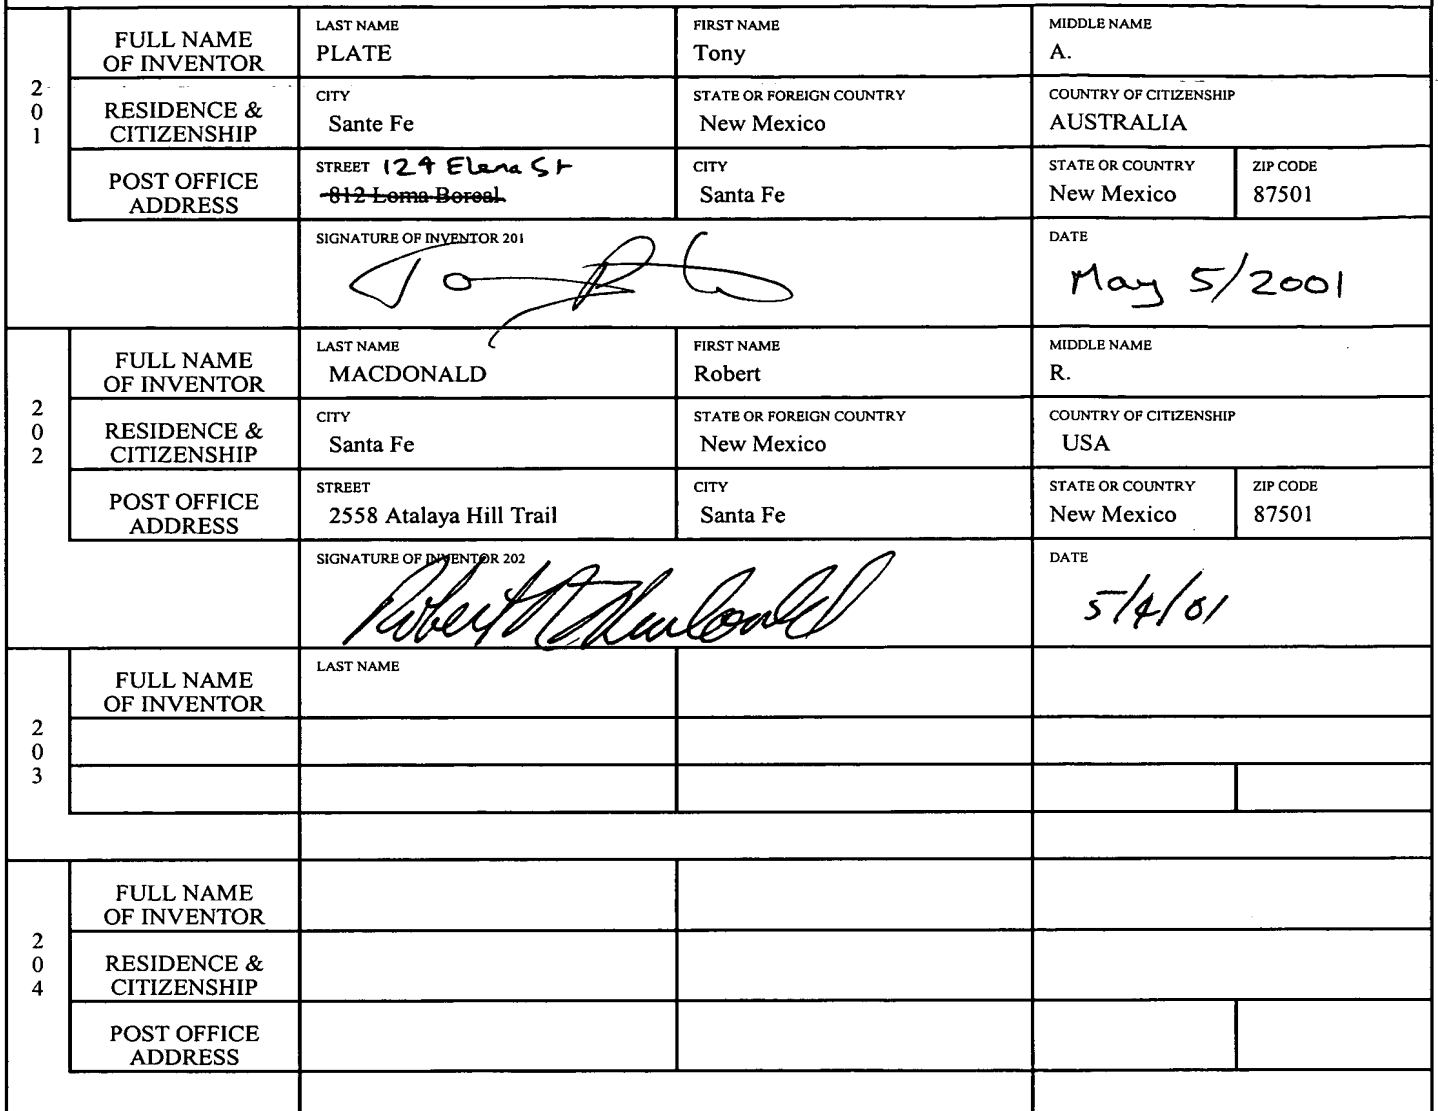 FULL NAME OF INVENTOR
LAST NAME
PLATE
FIRST NAME
Tony
MIDDLE NAME
A.
201
RESIDENCE & CITIZENSHIP
CITY
Sante Fe
STATE OR FOREIGN COUNTRY
New Mexico
COUNTRY OF CITIZENSHIP
AUSTRALIA
POST OFFICE ADDRESS
STREET 124 Elena St
812 Loma Boreal
CITY
Santa Fe
STATE OR COUNTRY
New Mexico
ZIP CODE
87501
SIGNATURE OF INVENTOR 201
DATE
May 5/2001
FULL NAME OF INVENTOR
LAST NAME
MACDONALD
FIRST NAME
Robert
MIDDLE NAME
R.
202
RESIDENCE & CITIZENSHIP
CITY
Santa Fe
STATE OR FOREIGN COUNTRY
New Mexico
COUNTRY OF CITIZENSHIP
USA
POST OFFICE ADDRESS
STREET
2558 Atalaya Hill Trail
CITY
Santa Fe
STATE OR COUNTRY
New Mexico
ZIP CODE
87501
SIGNATURE OF INVENTOR 202
Robert R MacDonald
DATE
5/4/01
FULL NAME OF INVENTOR
LAST NAME
203
FULL NAME OF INVENTOR
204
RESIDENCE & CITIZENSHIP
POST OFFICE ADDRESS